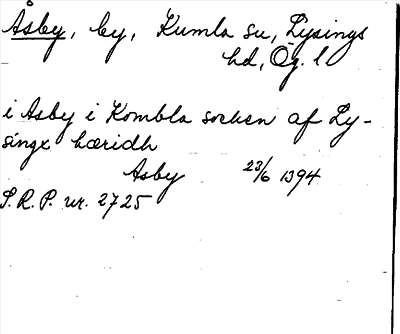 Åsby, by, Kumla sn, Lysings
hd, Ög. l.
i Asby i Kombla sochen af Ly-
singx hæridh
Asby 23/6 1394
S.R.P. nr. 2725